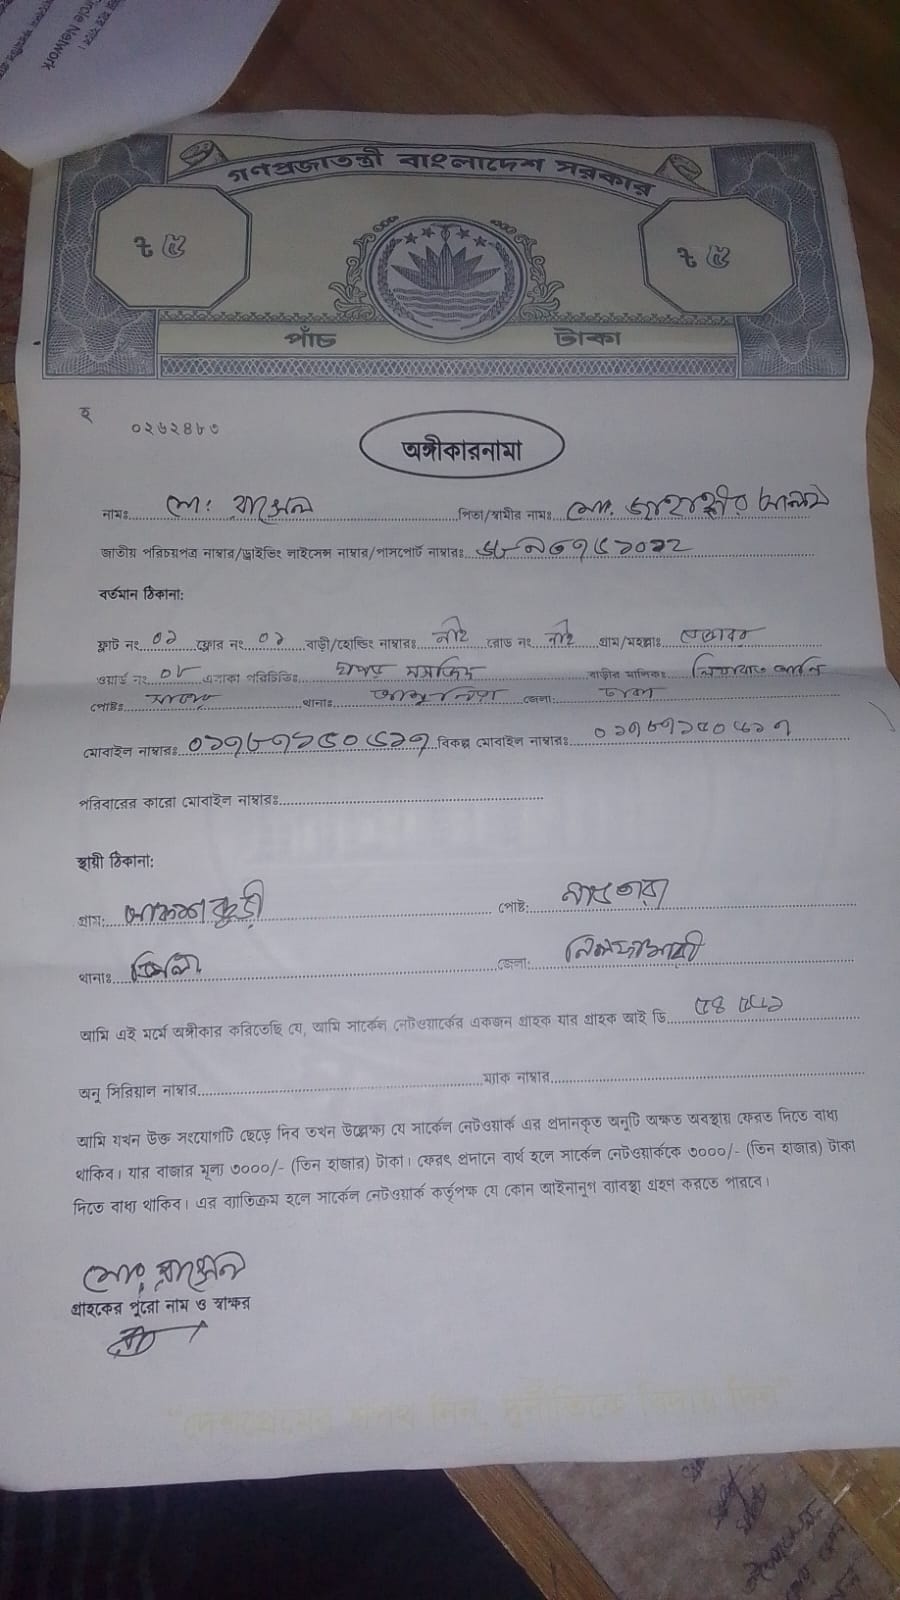 rcle Network
গণপ্রজাতন্ত্রী বাংলাদেশ সরকার
৳ ৫ ৳ ৫
পাঁচ টাকা
হ
০২৬২৪৮৩
অঙ্গীকারনামা
নামঃ মো: রাসেল পিতা/স্বামীর নামঃ মো. জাহাঙ্গীর আলম
জাতীয় পরিচয়পত্র নাম্বার/ড্রাইভিং লাইসেন্স নাম্বার/পাসপোর্ট নাম্বারঃ
বর্তমান ঠিকানা:
ফ্লাট নং ০১ ফ্লোর নং ০১ বাড়ী/হোল্ডিং নাম্বারঃ নাই রোড নং নাই গ্রাম/মহল্লাঃ
ওয়ার্ড নং ০৮ এলাকা পরিচিতিঃ মসজিদ বাড়ীর মালিকঃ লিয়াকত আলি
পোষ্টঃ সাভার থানাঃ আশুলিয়া জেলা: ঢাকা
মোবাইল নাম্বারঃ বিকল্প মোবাইল নাম্বারঃ
পরিবারের কারো মোবাইল নাম্বারঃ
স্থায়ী ঠিকানা:
গ্রাম: আকাশকুড়ী পোষ্ট: নাউতারা
থানাঃ ডিমলা জেলা: নিলফামারী
আমি এই মর্মে অঙ্গীকার করিতেছি যে, আমি সার্কেল নেটওয়ার্কের একজন গ্রাহক যার গ্রাহক আই ডি
অনু সিরিয়াল নাম্বার ম্যাক নাম্বার
আমি যখন উক্ত সংযোগটি ছেড়ে দিব তখন উল্লেক্ষ্য যে সার্কেল নেটওয়ার্ক এর প্রদানকৃত অনুটি অক্ষত অবস্থায় ফেরত দিতে বাধ্য
থাকিব। যার বাজার মূল্য ৩০০০/- (তিন হাজার) টাকা। ফেরৎ প্রদানে ব্যর্থ হলে সার্কেল নেটওয়ার্ককে ৩০০০/- (তিন হাজার) টাকা
দিতে বাধ্য থাকিব। এর ব্যাতিক্রম হলে সার্কেল নেটওয়ার্ক কর্তৃপক্ষ যে কোন আইনানুগ ব্যাবস্থা গ্রহণ করতে পারবে।
মোঃ রাসেল
গ্রাহকের পুরো নাম ও স্বাক্ষর
"দেশপ্রেমের শপথ নিন, দুর্নীতিকে বিদায় দিন"